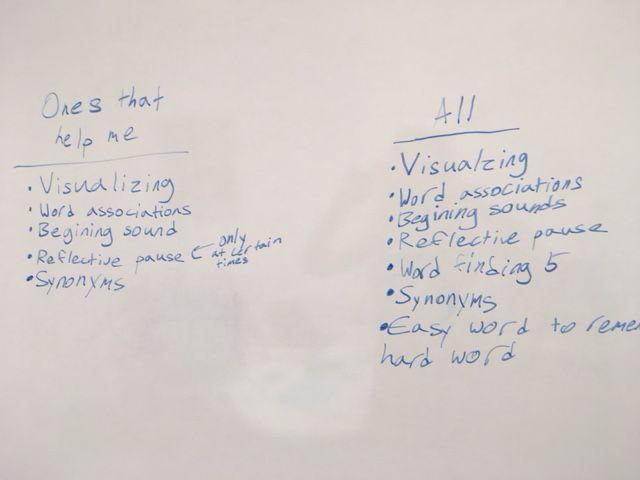 Ones that
help me
• Visualizing
• Word associations
• Begining sound
• Reflective pause ← only
at certain
times
• Synonyms
All
• Visualzing
• Word associations
• Begining sounds
• Reflective pause
• Word finding 5
• Synonyms
• Easy word to remem
hard word